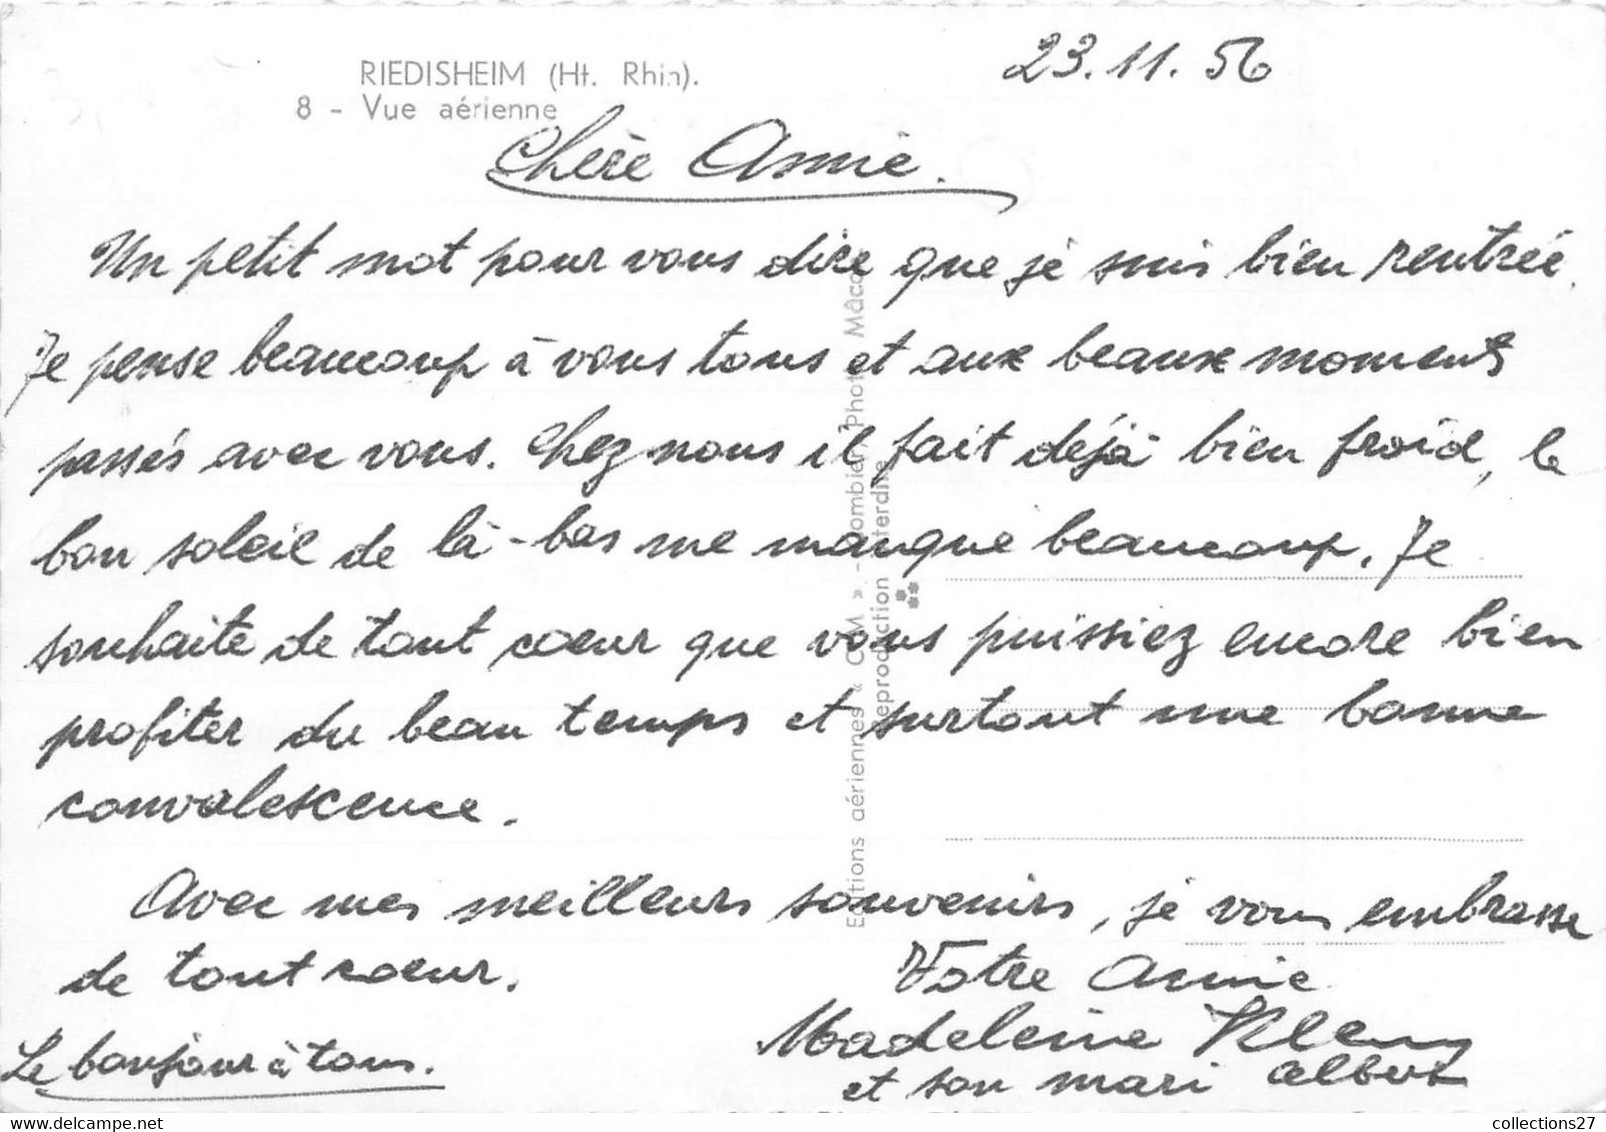 RIEDISHEIM (Ht. Rhin).
8 - Vue aérienne
23.11.56
Chère Amie.
Un petit mot pour vous dire que je suis bien rentrée.
Je pense beaucoup à vous tous et aux beaux moments
passés avec vous. Chez nous il fait déjà bien froid, le
bon soleil de là-bas me manque beaucoup. Je
souhaite de tout coeur que vous puissiez encore bien
profiter du beau temps et surtout une bonne
convalescence.
Avec mes meilleurs souvenirs, je vous embrasse
de tout coeur.
Votre Amie
Madeleine
et son mari Albert
Le bonjour à tous.
Editions aériennes « CIM » - Combier Photo Mâcon
Reproduction interdite
collections27